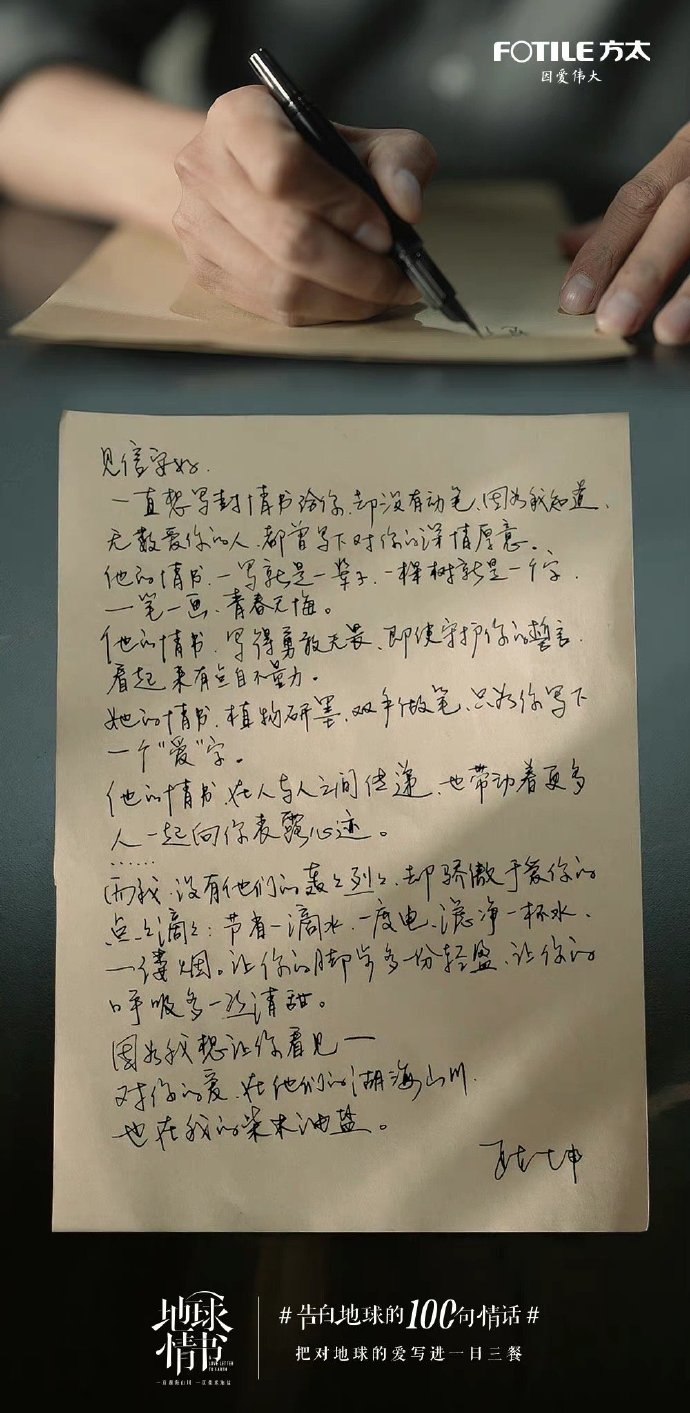 FOTILE 方太
因爱伟大
见信安好.
一直想写封情书给你,却没有动笔,因为我知道,
无数爱你的人,都曾写下对你的深情厚意。
他的情书,一写就是一辈子,一棵树就是一个字,
一笔一画,青春无悔。
他的情书,写得勇敢无畏,即使守护你的誓言,
看起来有点自不量力。
她的情书,植物研墨,双手做笔,只为你写下
一个“爱”字。
他的情书,在人与人之间传递,也带动着更多
人一起向你表露心迹。
……
而我,没有他们的轰轰烈烈,却骄傲于爱你的
点点滴滴:节省一滴水,一度电,滤净一杯水,
一缕烟。让你的脚步多一份轻盈,让你的
呼吸多一丝清甜。
因为我想让你看见—
对你的爱,在他们的湖海山川,
也在我的柴米油盐。
地球
情书
LOVE LETTER
TO EARTH
#告白地球的100句情话#
把对地球的爱写进一日三餐